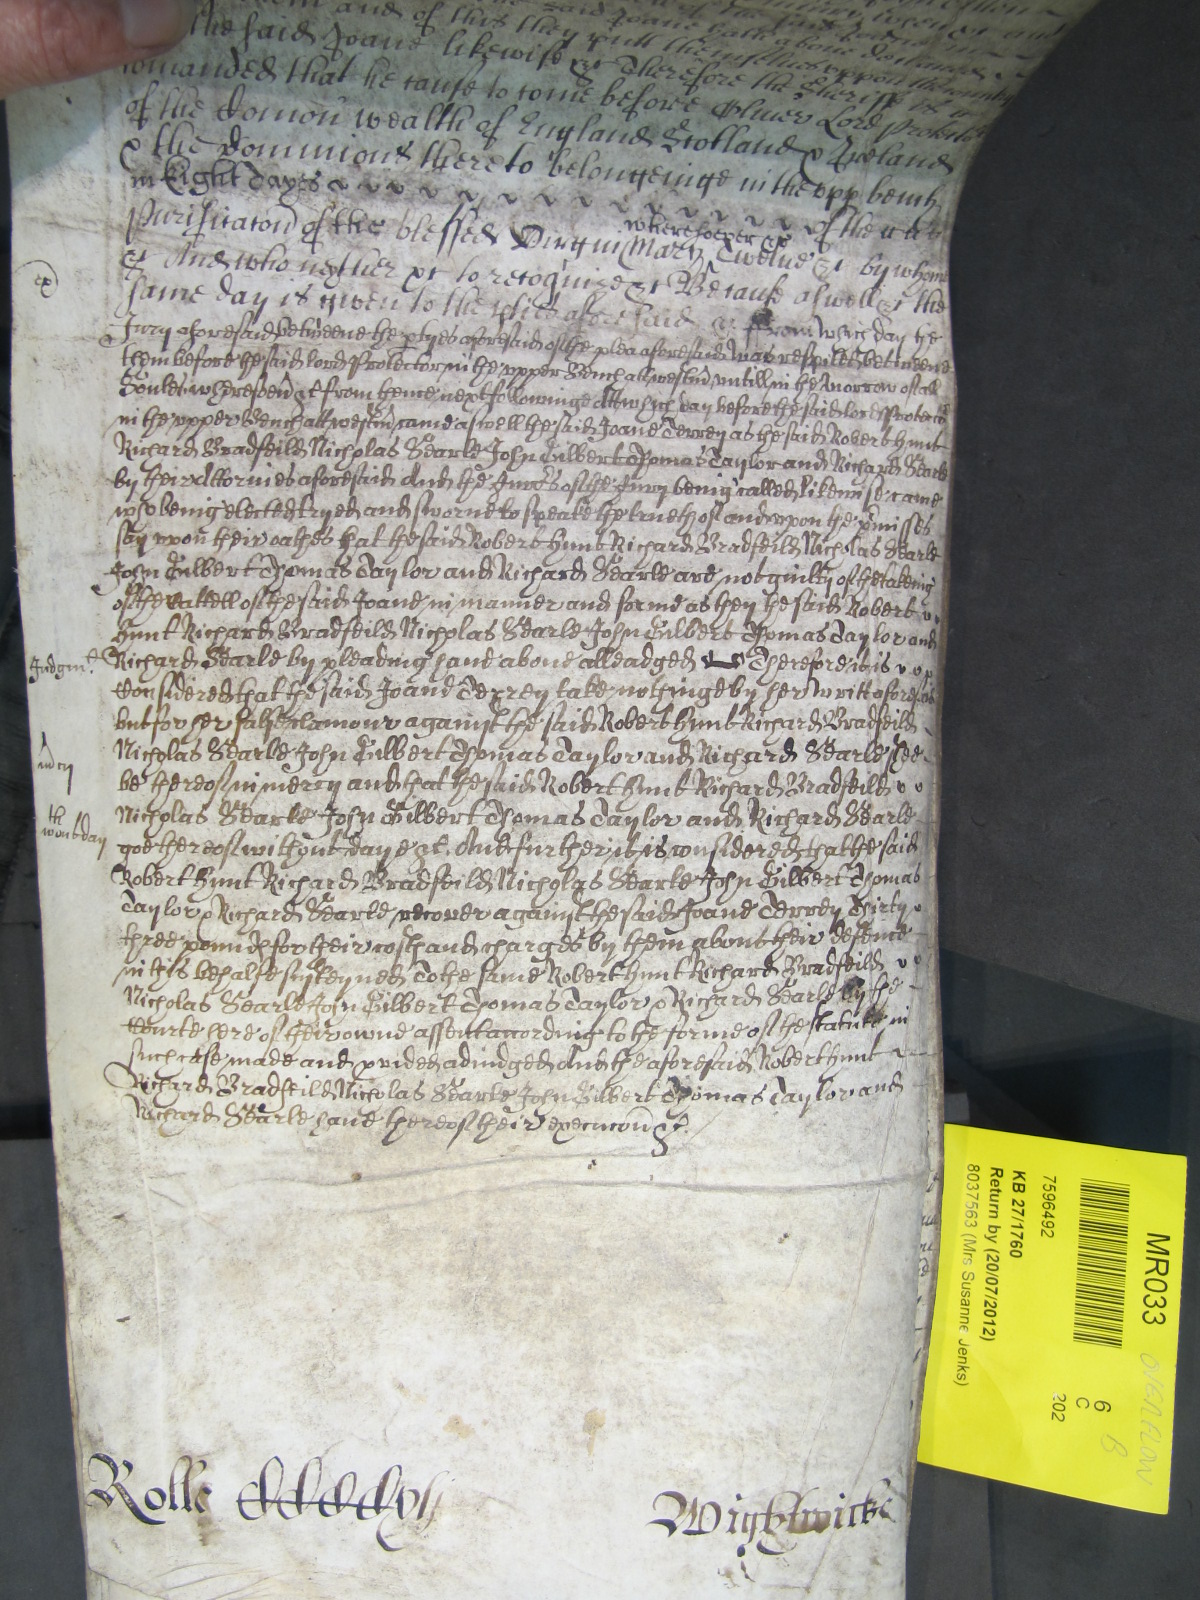 and of this they putt themselues uppon the Country
the said Joane likewise &c Therefore the Sheriff is
comanded that he cause to come before Oliver Lord Protector
of the Comon wealth of England Scotland & Ireland
& the dominions thereto belongeinge in the upp bench
in Eight dayes of the
Purificacon of the blessed Virgin Mary wheresoever &c Twelue &c by whome
&c And who neither &c to recognize &c Because aswell &c the
same day is given to the pties aforesaid &c ffrom which day the
Jury aforesaid betweene the ptyes aforesaid of the plea aforesaid was respited betweene
them before the said lord Protector in the upper Bench att westm untill in the Morrow of all
Soules then next followinge Att which day before the said lord Protector
in the upper Bench att westm came aswell the said Joane Terrey as the said Robert Hunt
Richard Bradfeild Nicholas Searle John Gilbert Thomas Taylor and Richard Searle
by their Attornies aforesaid And the Jurors of the Jury being called likewise came
who being elected tryed and sworne to speake the trueth of and uppon the pmisses
say uppon their oathes that the said Robert Hunt Richard Bradfeild Nicholas Searle
John Gilbert Thomas Taylor and Richard Searle are not guilty of the takeing
of the Cattell of the said Joane in manner and forme as they the said Robert
Hunt Richard Bradfeild Nicholas Searle John Gilbert Thomas Taylor and
Judgmt Richard Searle by pleading haue aboue alleadged Therefore it is
Considered that the said Joane Terrey take nothinge by her writt aforesaid
but for her false clamour against the said Robert Hunt Richard Bradfeild
Nicholas Searle John Gilbert Thomas Taylor and Richard Searle shee
mcy be thereof in mercy and that the said Robert Hunt Richard Bradfeild
Nicholas Searle John Gilbert Thomas Taylor and Richard Searle
wout day goe thereof without day &c And further it is considered that the said
Robert Hunt Richard Bradfeild Nicholas Searle John Gilbert Thomas
Taylor & Richard Searle recover against the said Joane Terrey Thirty
three pounds for their costs and charges by them about their deffence
in this behalfe susteyned To the same Robert Hunt Richard Bradfeild
Nicholas Searle John Gilbert Thomas Taylor & Richard Searle by the
Courte here of their owne assent according to the forme of the statute in
such case made and pvided adiudged And the aforesaid Robert Hunt
Richard Bradfeild Nicholas Searle John Gilbert Thomas Taylor and
Richard Searle haue thereof their execucon &c.
Rolle
Wightwicke
MR033
OVERFLOW
6
C
B
202
7596492
KB 27/1760
Return by (20/07/2012)
8037563 (Mrs Susanne Jenks)